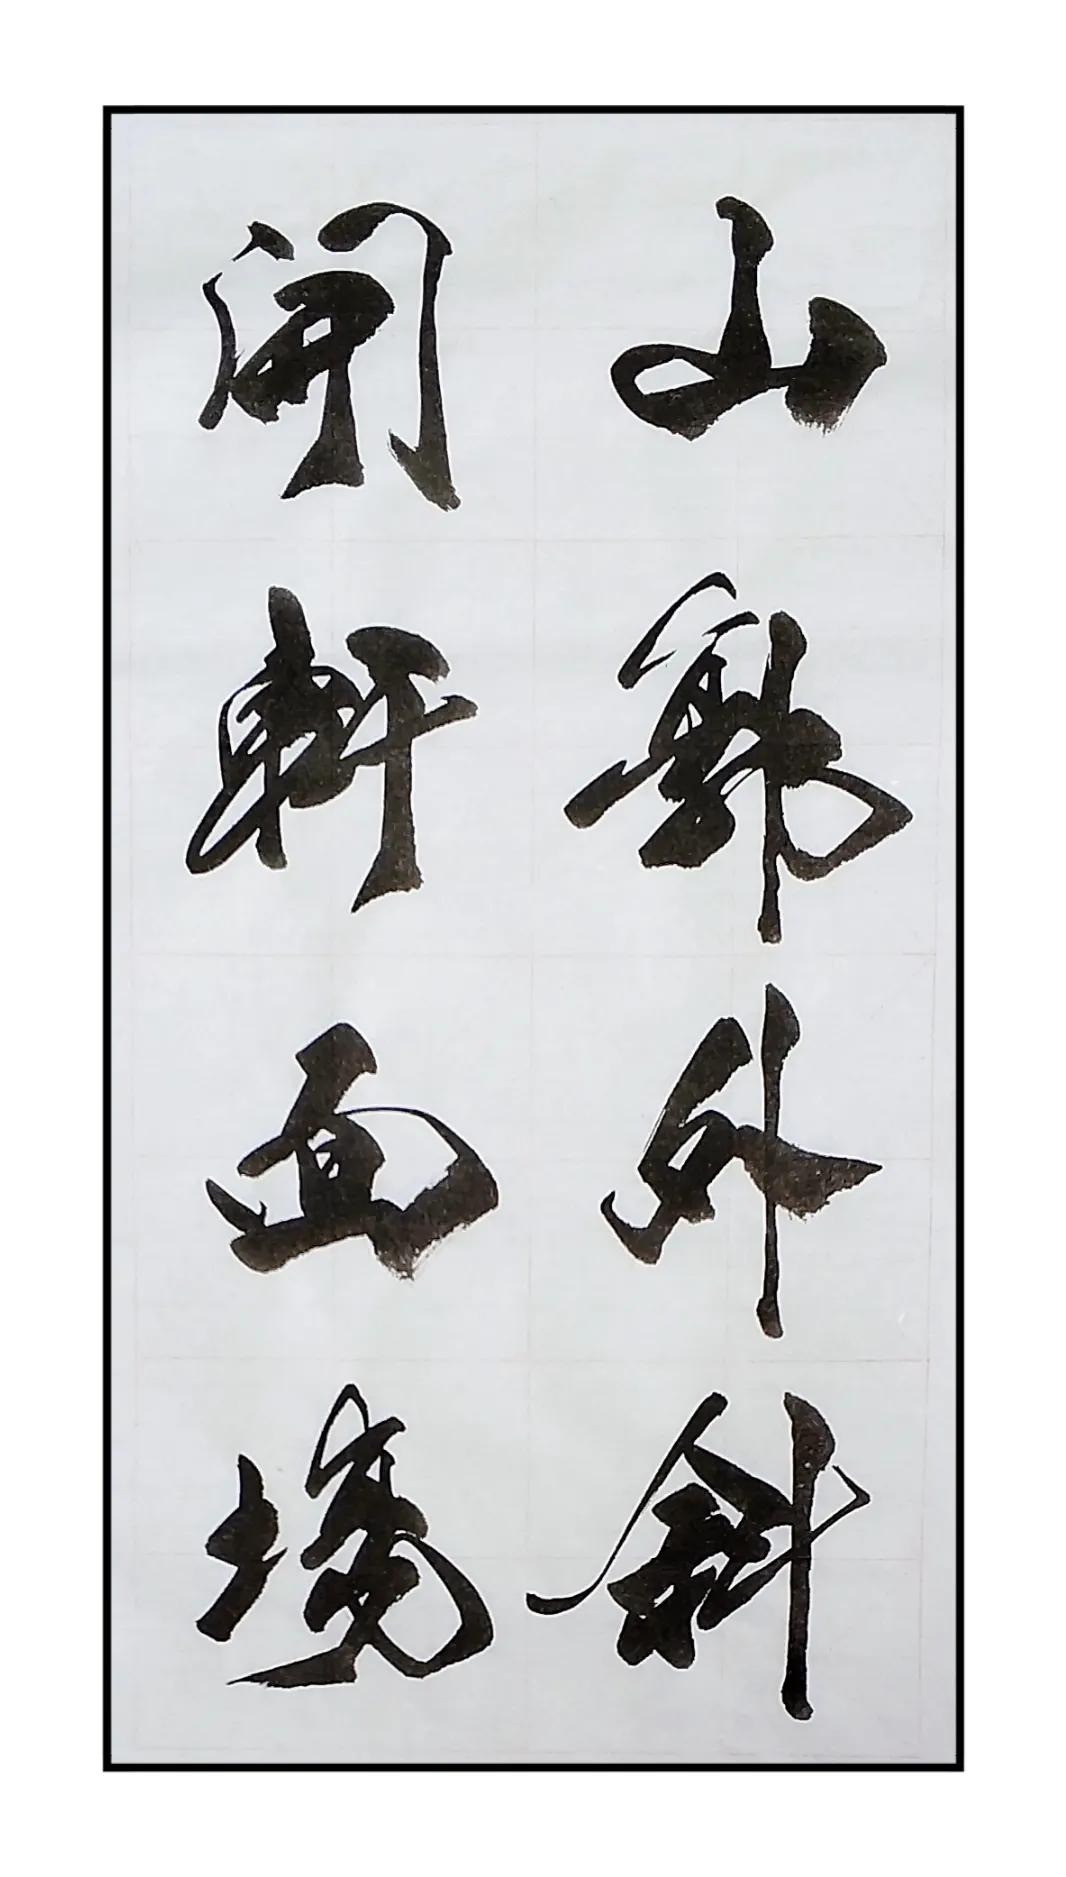 山郭外斜
開軒面場